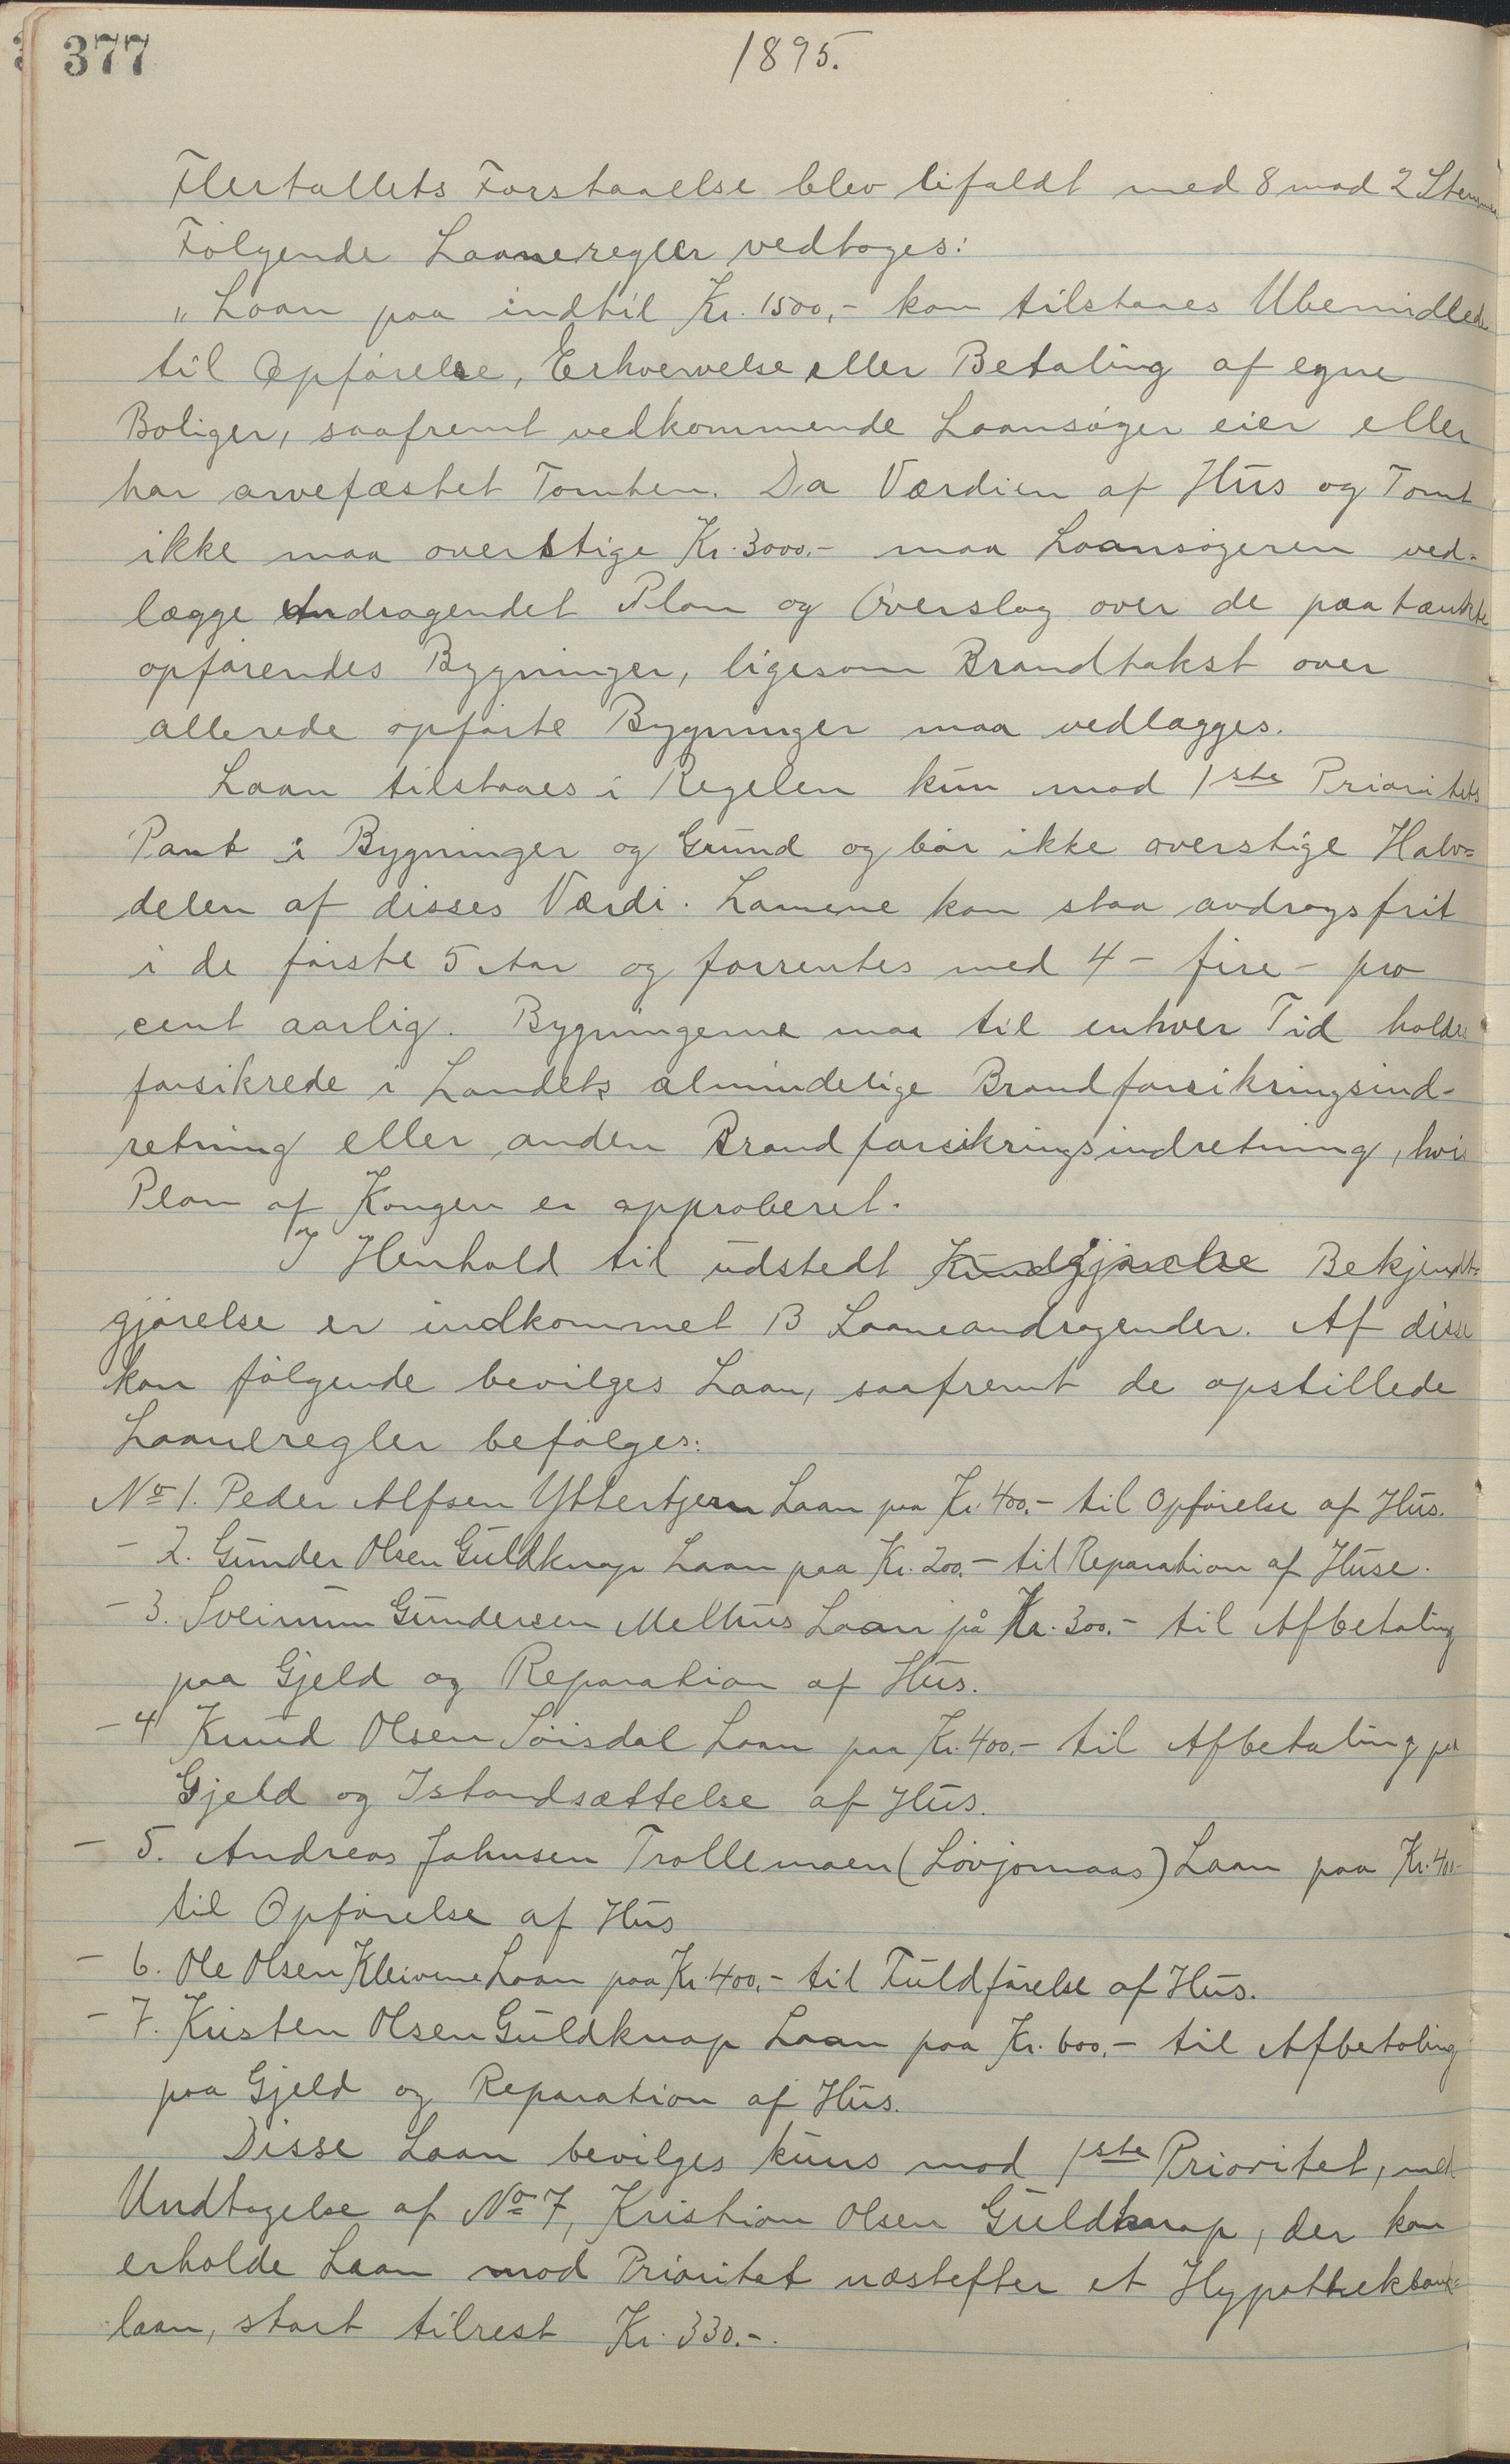 377
1895.
Flertallets Forstaaelse blev bifaldt med 8 mod 2 Stemmer
Følgende Laaneregler vedtoges:
„Laan paa indtil Kr. 1500,- kan tilstaaes Ubemidlede
til Opførelse, Erhvervelse eller Betaling af egne
Boliger, saafremt vedkommende Laansøger eier eller
har arvefæstet Tomten. Da Værdien af Hus og Tomt
ikke maa overstige Kr. 3000.- maa Laansøgeren ved-
lægge Andragendet Plan og Overslag over de paatænkte
opførendes Bygninger, ligesom Brandtakst over
allerede opførte Bygninger maa vedlægges.
Laan tilstaaes i Regelen kun mod 1ste Prioritets
Pant i Bygninger og Grund og bør ikke overstige Halv-
delen af disses Værdi. Lanene kan staa avdragsfrit
i de første 5 Aar og forrentes med 4 - fire - pro
cent aarlig. Bygningerne maa til enhver Tid holdes
forsikrede i Landets almindelige Brandforsikringsind-
retning eller anden Brandforsikringsindretning, hvis
Plan af Kongen er approberet.
I Henhold til udstedt Kundgjørelse Bekjendt-
gjørelse er indkommet 13 Laaneandragender. Af disse
kan følgende bevilges Laan, saafremt de opstillede
Laaneregler befølges:
No 1. Peder Alfsen Yttertjern Laan paa Kr. 400.- til Opførelse af Hus.
- 2. Gunder Olsen Guldknap Laan paa Kr. 200.- til Reparation af Huse.
- 3. Sveinum Gundersen Melhus Laan på Kr. 300.- til Afbetaling
paa Gjeld og Reparation af Hus.
- 4 Knud Olsen Soisdal Laan paa Kr. 400.- til Afbetaling på
Gjeld og Istandsættelse af Hus.
- 5. Andreas Johnsen Trollemoen (Løvjomaas) Laan paa Kr. 400-
til Opførelse af Hus
- 6. Ole Olsen Kleivene Laan paa Kr. 400.- til Fuldførelse af Hus.
- 7. Kristen Olsen Guldknap Laan paa Kr. 600.- til Afbetaling
paa Gjeld og Reparation af Hus.
Disse Laan bevilges kuns mod 1ste Prioritet, med
Undtagelse af No 7, Kristian Olsen Guldknap, der kan
erholde Laan mod Prioritet næstefter et Hypothekbank-
laan, stort tilrest Kr. 330.-.